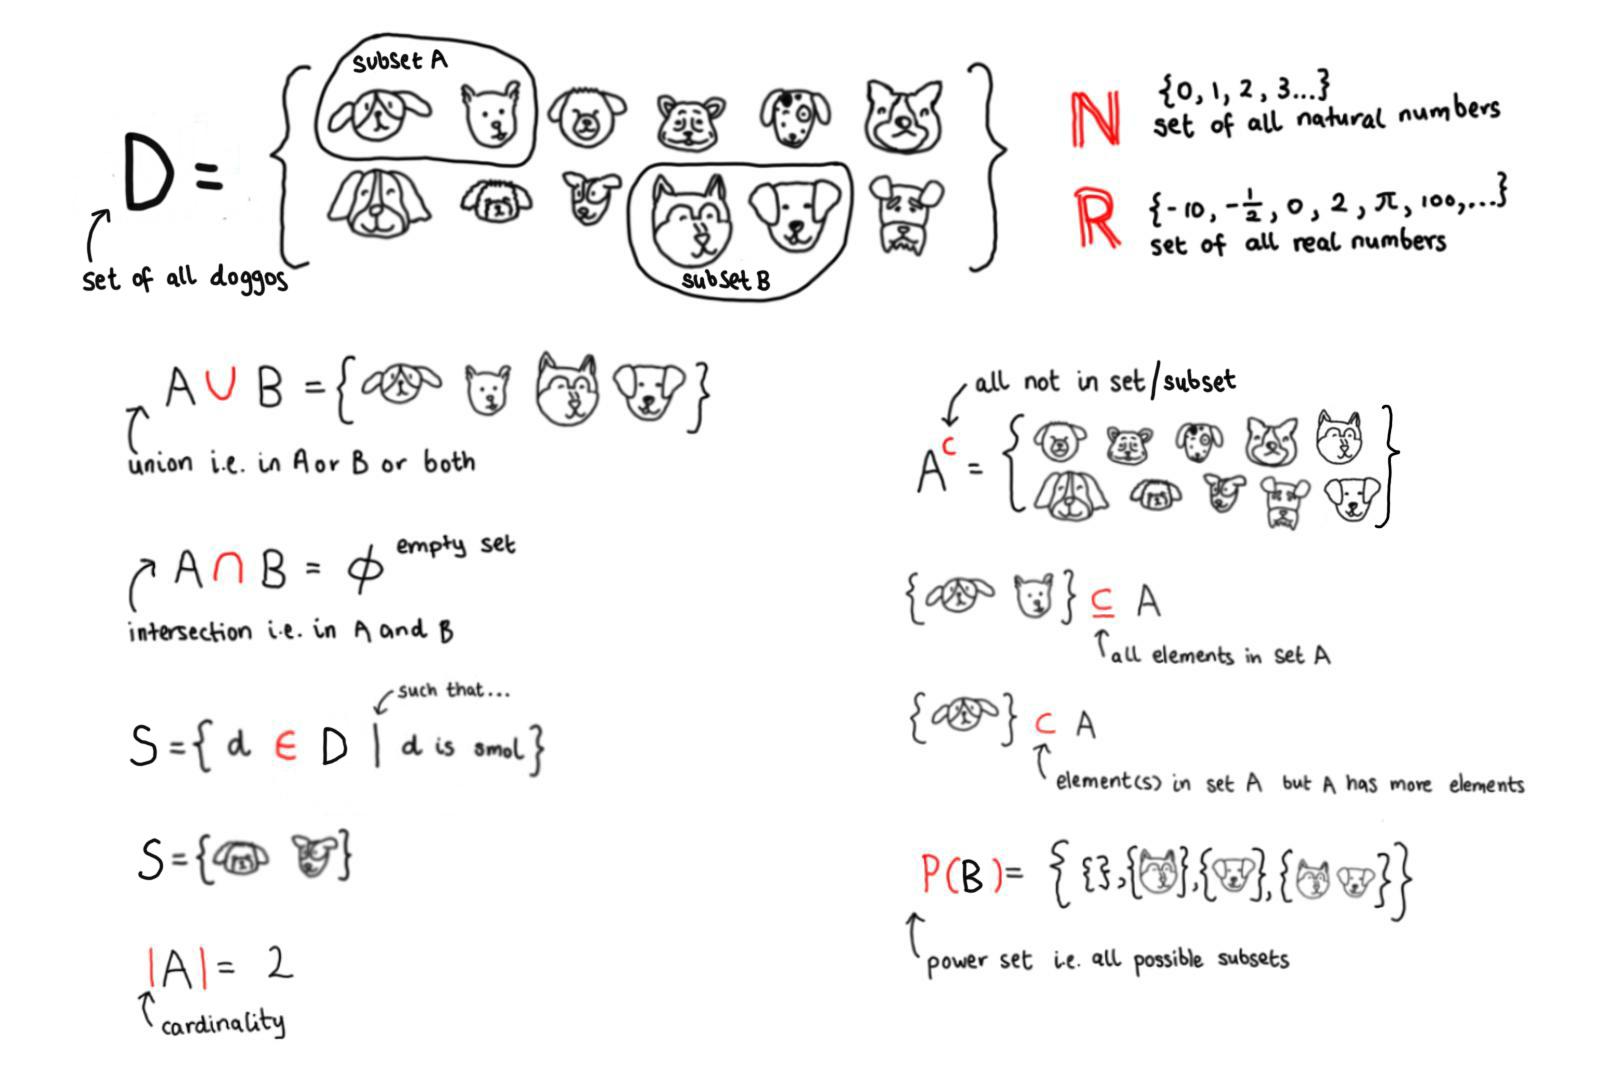 subset A
D =
set of all doggos
subset B
N {0, 1, 2, 3...}
set of all natural numbers
R {-10, -1/2, 0, 2, π, 100,...}
set of all real numbers
A ∪ B = { }
union i.e. in A or B or both
A ∩ B = ϕ empty set
intersection i.e. in A and B
such that...
S = { d ∈ D | d is smol }
S = { }
|A| = 2
cardinality
all not in set/subset
A^c = { }
{ } ⊆ A
all elements in set A
{ } ⊂ A
element(s) in set A but A has more elements
P(B) = { {}, { }, { }, { } }
power set i.e. all possible subsets